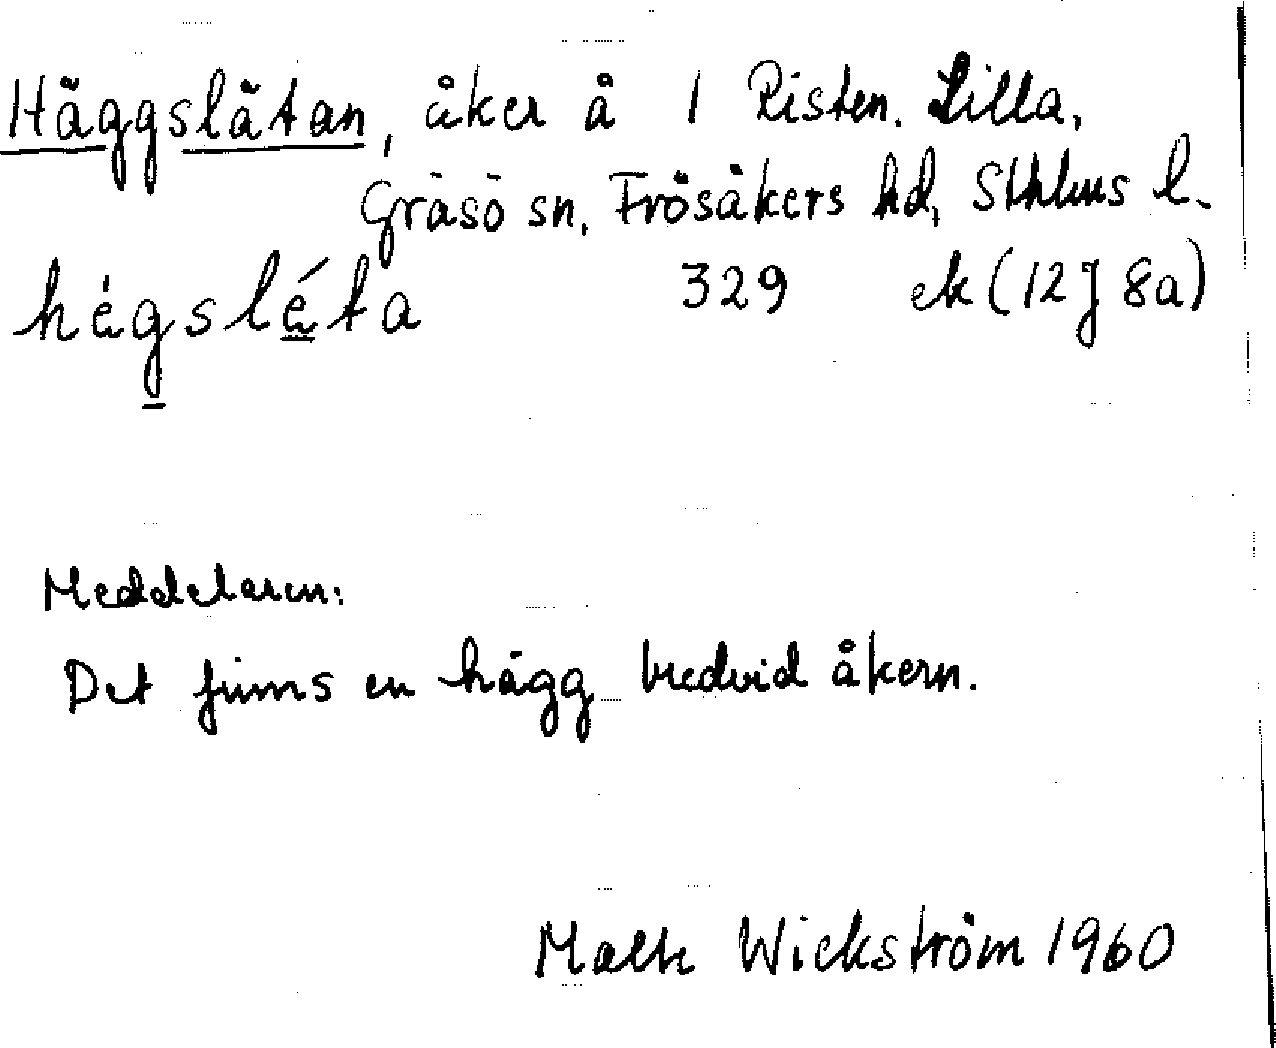 Häggslätan, åker å 1 Risten. Lilla,
Gräsö sn, Frösåkers hd, Sthlms l.
hégsléta 329 ek (12J 8a)
Meddelaren:
Det finns en hägg bredvid åkern.
Malte Wickström 1960